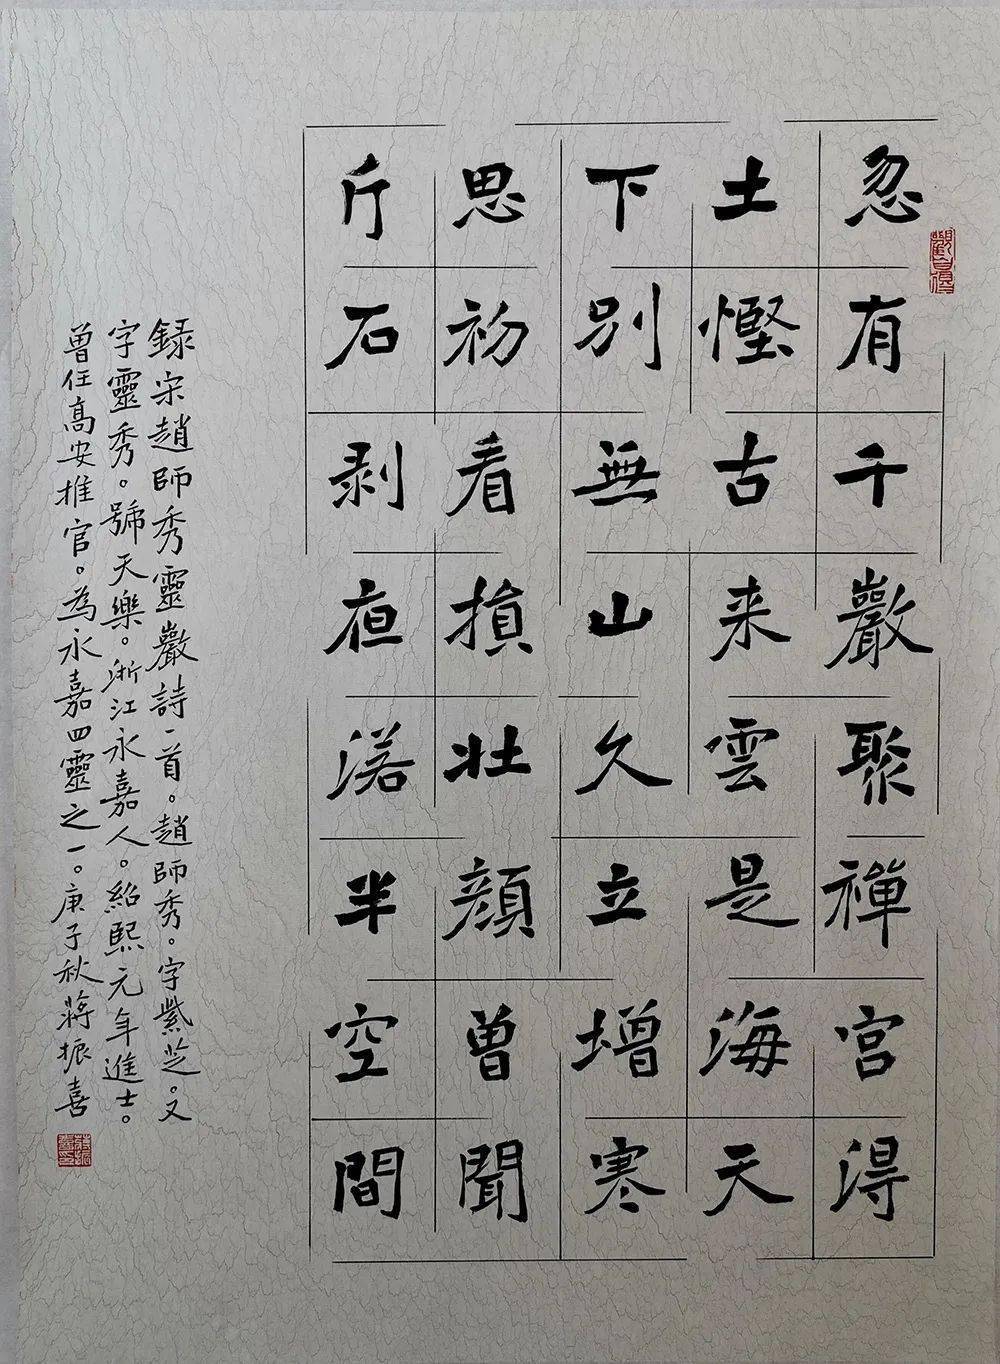 觀自得
忽有千巖聚禪宮得
土慳古来雲是海天
下別無山久立增寒
思初看損壯顔曾聞
斤石剥夜落半空間
録宋趙師秀靈巖詩一首。趙師秀。字紫芝。又
字靈秀。號天樂。浙江永嘉人。紹熙元年進士。
曾任高安推官。為永嘉四靈之一。庚子秋蔣振喜
蔣振喜印